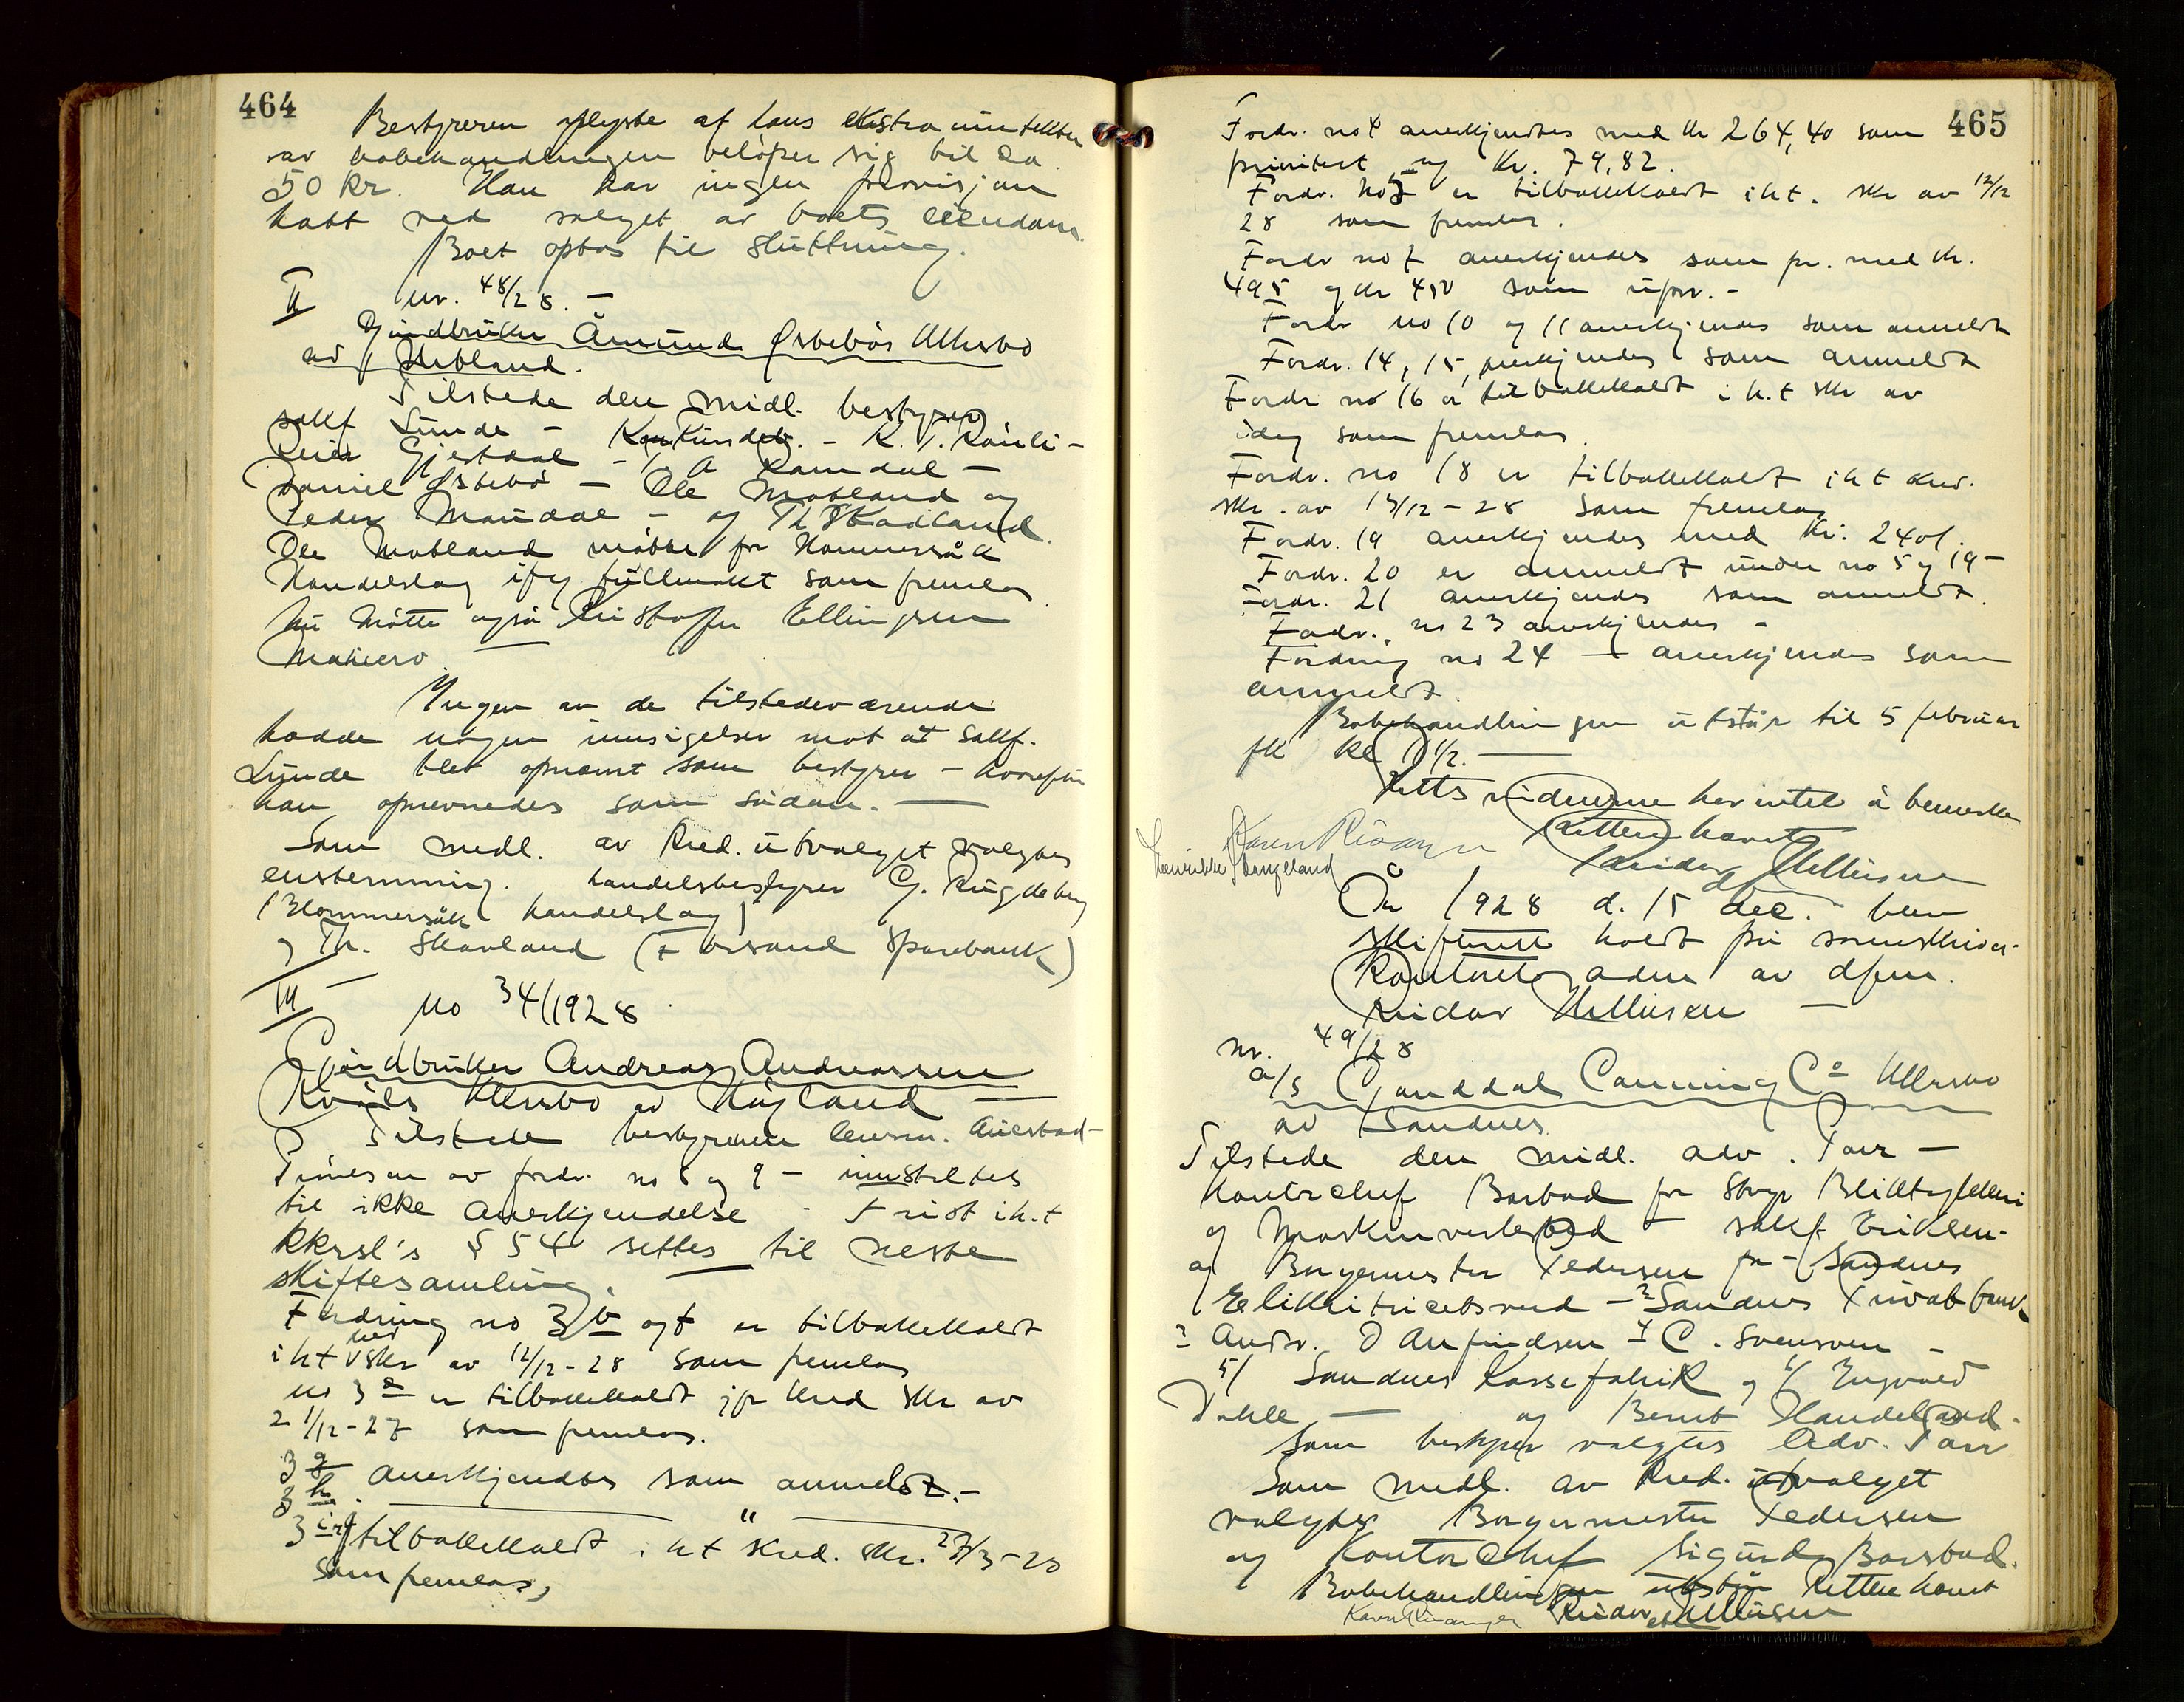 464
Bestyreren oplyste at hans ekstra
var bobehandlingen beløper sig til ca
50 kr. Han har ingen provisjon
hatt ved salget av boets eiendom
Boet optas til sluttning.
II nr. 48/28. –
Gårdbruker Åmund Østebøs
av
Tilstede den midl. bestyrer
sakf Lunde – – K. T.
Peder Gjestdal – A Ramdal –
Daniel Østebø – Ole Mobland og
Peder Maudal – og Th Skavland.
Ole Mobland møtte for Hommersåk
Handelslag ifg fullmakt som fremlas
Nu møtte også Kristoffer Ellingsen

Ingen av de tilstedeværende
hadde nogen innsigelser mot at sakf.
Lunde blev opnevnt som bestyrer – hvorefter
han opnevnedes som sådan. –
Som medl. av kred. utvalget valgtes
enstemmig. handelsbestyrer G.
(Hommersåk handelslag)
og Th. Skavland (Forsand Sparebank)
III no 34/1928
Gårdbruker Andreas Andreassen
Kvåls av Høyland –
Tilstede bestyreren lensm. Auestad –
av fordr. no 8 og 9 – innstiltes
til ikke anerkjendelse – Frist i h.t
kkrsl's § 54 settes til neste
skiftesamling. –
Fordring no 3 b og f er tilbakekaldt
i ht skr av 12/12 – 28 som fremlas
no 3 a er tilbakekaldt jfr kred skr av
21/12 – 27 som fremlas.
3 g anerkjendtes som anmeldt. –
3 h – " –
3 i tilbakekaldt i ht kred. skr. 27/3 – 28
som fremlas,
465
Fordr. no 4 anerkjendtes med kr 264,40 som
prioritert og kr. 79,82.
Fordr. no 5 er tilbakekaldt i h.t. skr av 12/12
28 som fremlas.
Fordr no 7 anerkjendes som pr. med kr.
495 og kr 450 som upr. –
Fordr no 10 og 11 anerkjendes som anmeldt
Fordr. 14, 15, anerkjendes som anmeldt
Fordr no 16 er tilbakekaldt i h.t skr av
idag som fremlas.
Fordr. no 18 er tilbakekaldt i h t kred.
skr. av 13/12 – 28 som fremlas
Fordr. 19 anerkjendes med kr. 2401.
Fordr. 20 er anmeldt under no 5 og 19 –
Fordr. 21 anerkjendes som anmeldt.
Fordr. no 23 anerkjendes –
Fordring no 24 – anerkjendes som
anmeldt.
Bobehandlingen utstår til 5 februar
fk kl 11 1/2. –
Rettsvidnerne har intet å bemerke
Retten hevet
Karen Risanger Reidar Mellusen
Henrikke Skangeland
År 1928 d. 15 dec. blev
skifterett holdt på sorenskriver-
kontoret adm av dfm.
Reidar Mellusen –
nr. 49/28
A/S Ganddal Canning Co
av Sandnes
Tilstede den midl. adv. Tarr –
Kontorchef Borsbod for
og Maskinverksted – sakf Eriksen –
og Borgermester Pedersen for – 1) Sandnes
Elektricitetsverk – 2 Sandnes Privatbank
3 Andr. O Anfindsen 4 C. Svensven –
5/ Sandnes Kassefabrik og 6/ Engvald
Dahle – og Bernt Handeland.
Som bestyrer valgtes Adv. Tarr
Som medl. av kred. utvalget
valgtes Borgermester Pedersen
og Kontorchef Sigurd Borsbod.
Bobehandlingen utstår Retten hevet
Karen Risanger Reidar Mellusen